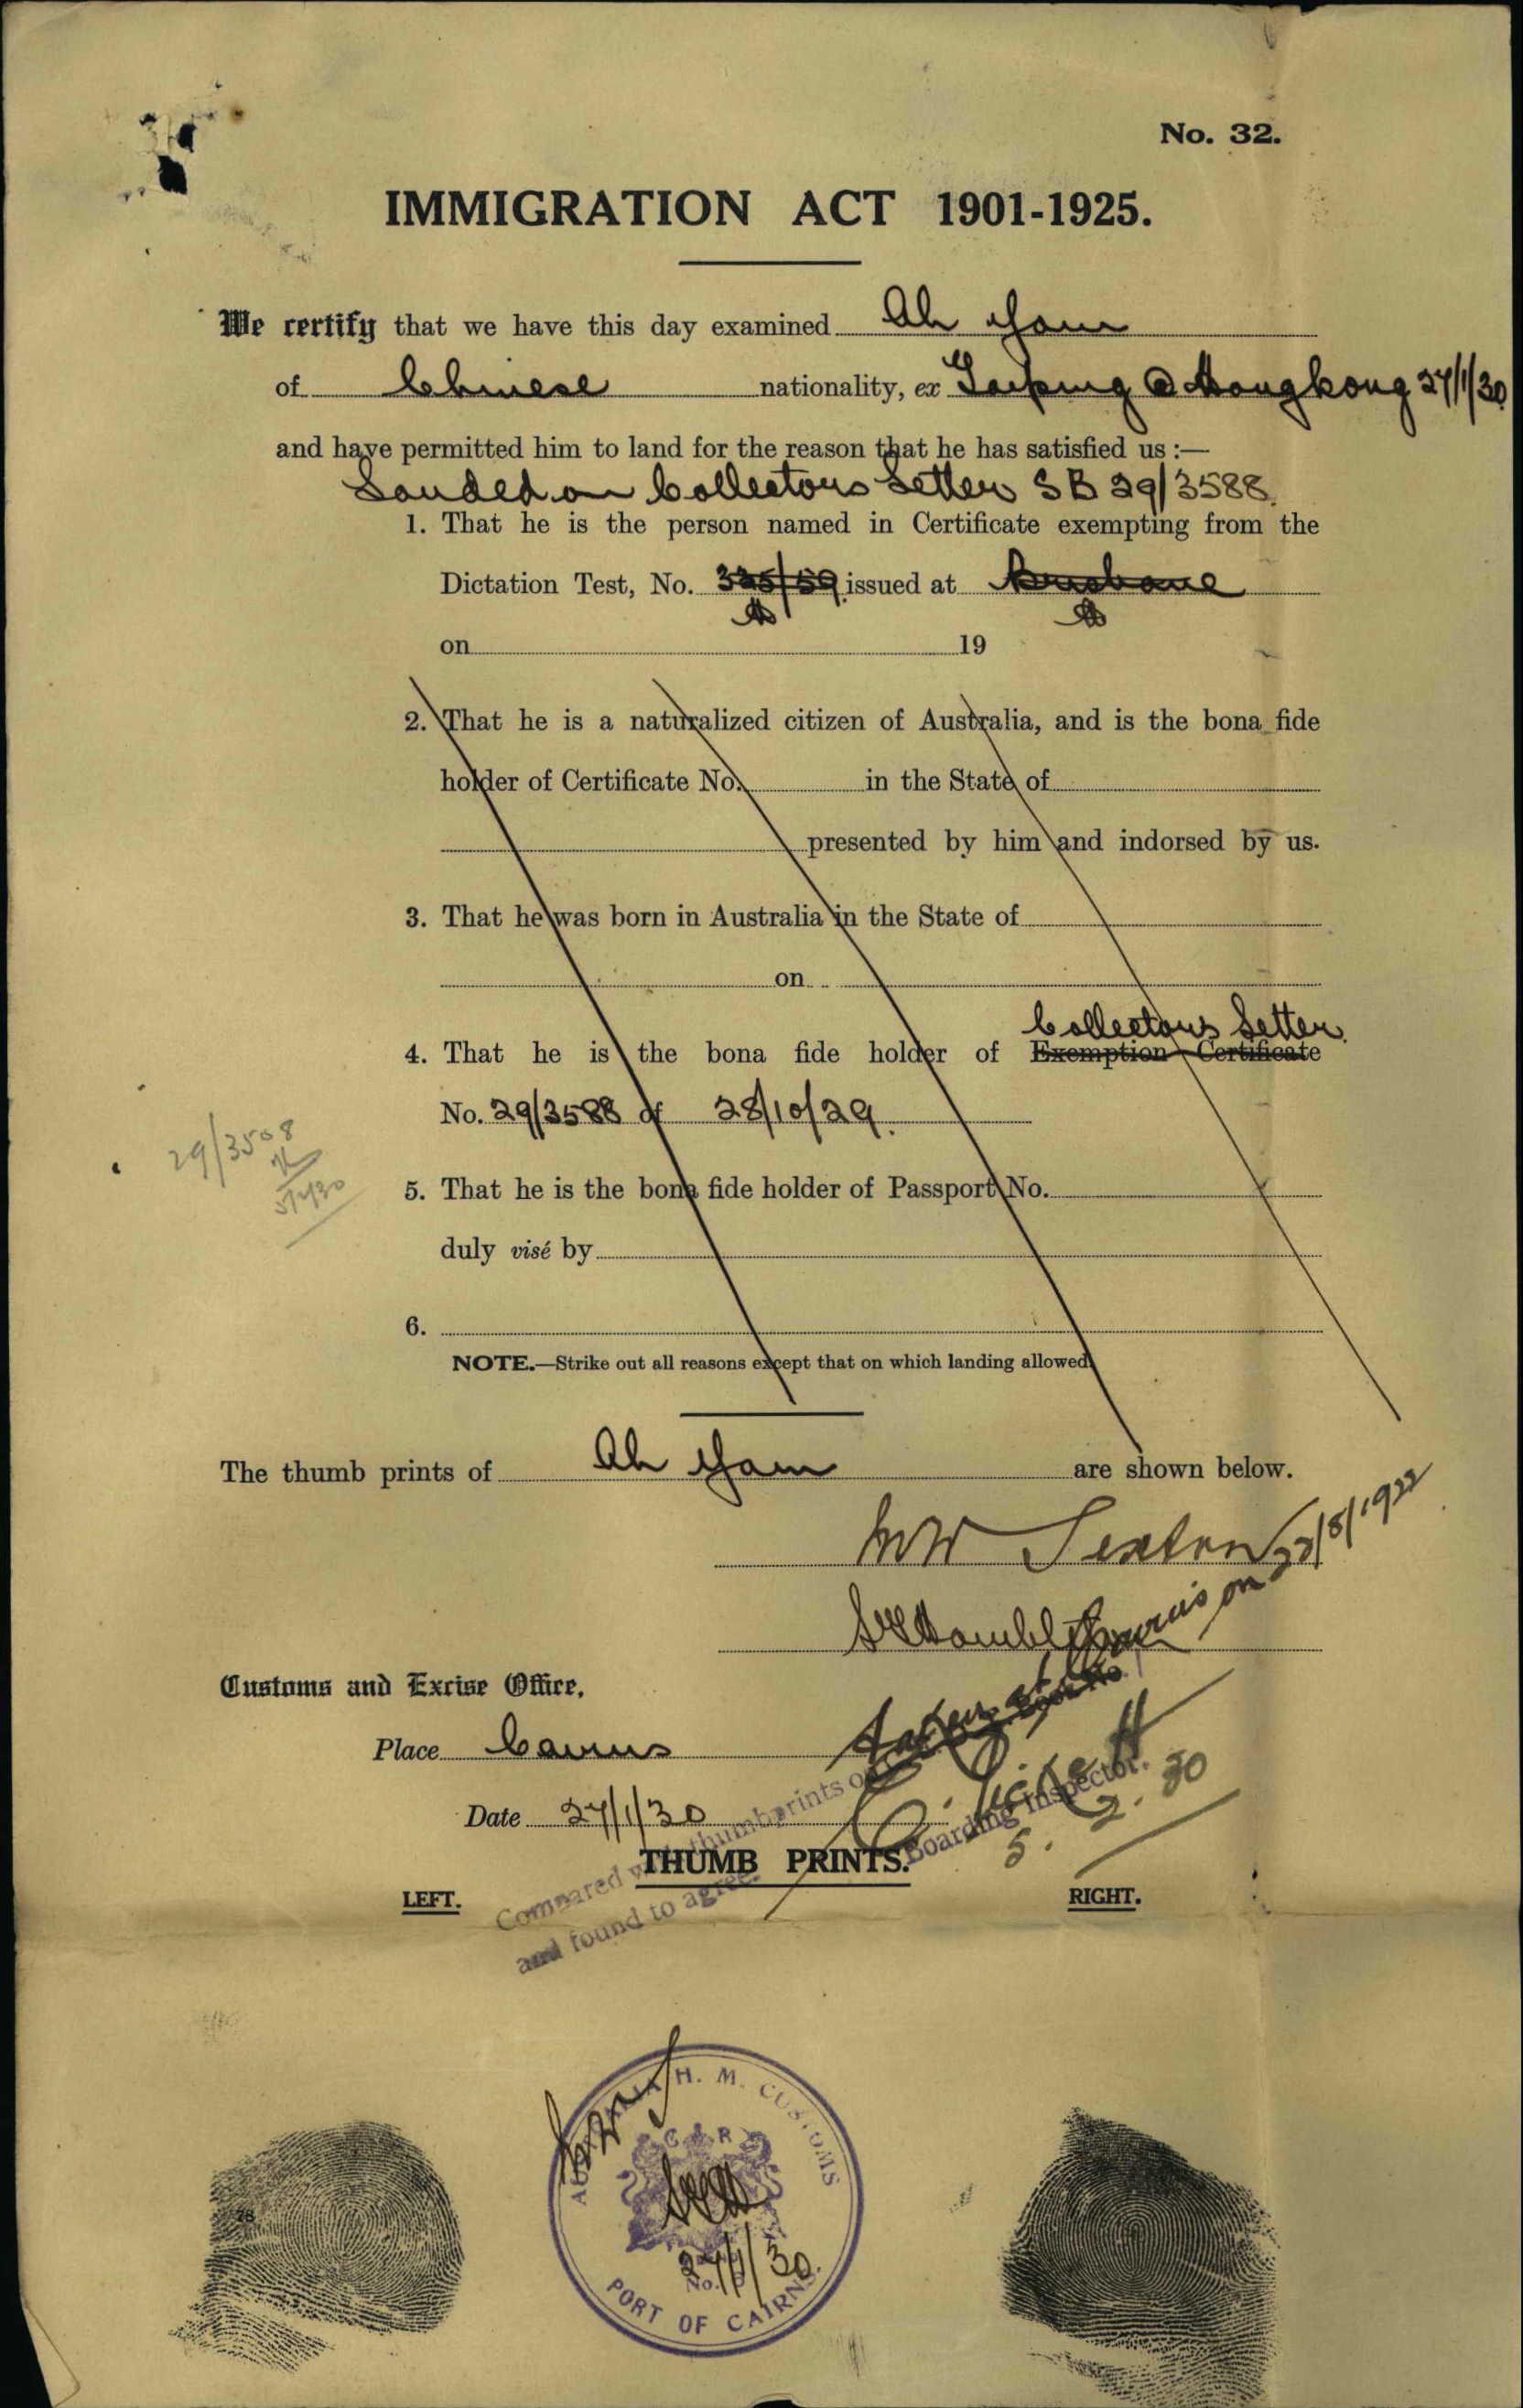 No. 32.
IMMIGRATION ACT 1901-1925.
We certify that we have this day examined Ah Yam
of Chinese nationality, ex Taiping @ Hongkong 27/1/30
and have permitted him to land for the reason that he has satisfied us :—
Landed on Collectors Letter SB 29/3588.
1. That he is the person named in Certificate exempting from the
Dictation Test, No. 335/59 issued at Brisbane
on 19
2. That he is a naturalized citizen of Australia, and is the bona fide
holder of Certificate No. in the State of
presented by him and indorsed by us.
3. That he was born in Australia in the State of
on
Collectors Letter
4. That he is the bona fide holder of Exemption Certificate
No. 29/3588 of 28/10/29.
29/3508
5/2/30
5. That he is the bona fide holder of Passport No.
duly visé by
6.
NOTE.—Strike out all reasons except that on which landing allowed.
The thumb prints of Ah Yam are shown below.
Customs and Excise Office,
taken at Cairns on 22/8/1922
Place Cairns
Date 27/1/30
5.2.30
Boarding Inspector.
Compared with thumbprints on
and found to agree.
THUMB PRINTS.
LEFT. RIGHT.
AUSTRALIA H. M. CUSTOMS
G R
27/1/30
No.
PORT OF CAIRNS.
78